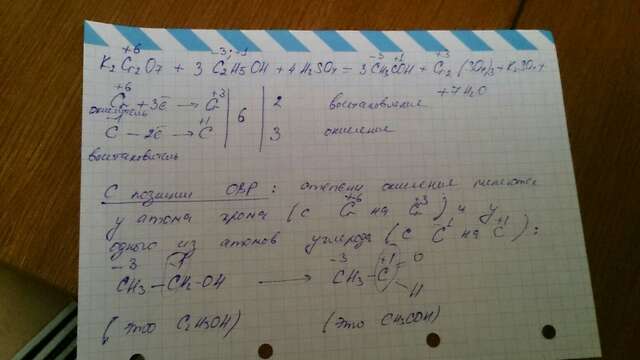 +6 -3;-1 -3 +1 +3
K2Cr2O7 + 3 C2H5OH + 4H2SO4 = 3 CH3COH + Cr2(SO4)3 + K2SO4 +
+ 7H2O
+6 +3
Cr + 3ē → Cr | 6 | 2 восстановление
окислитель
-1 +1
C - 2ē → C 3 окисление
восстановитель
С позиции ОВР: степени окисления меняются
у атома хрома (с Cr+6 на Cr+3) и у
одного из атомов углерода (с C-1 на C+1):
-3 -1 -3 +1 O
CH3 - CH2-OH → CH3 - C
H
(это C2H5OH) (это CH3COH)